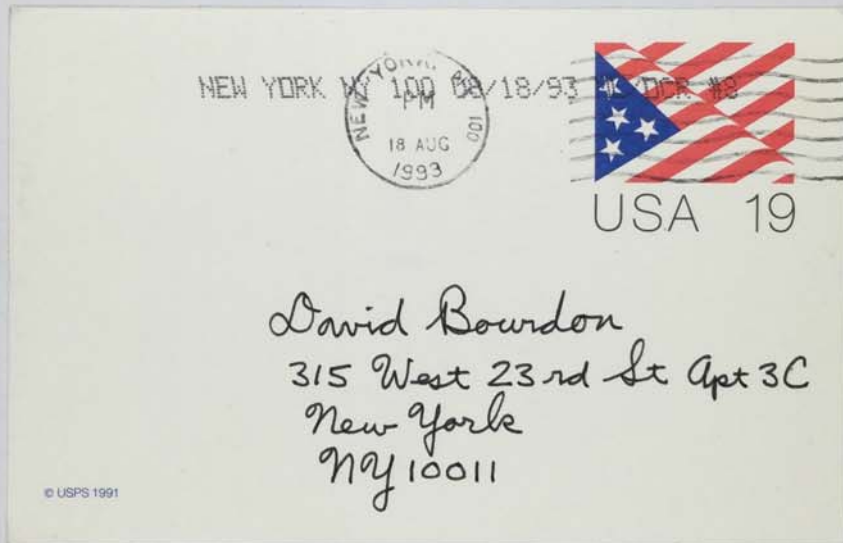 NEW YORK NY 100 08/18/93 DCR #8
NEW YORK, 100
PM
18 AUG
1993
USA 19
David Bourdon
315 West 23rd St Apt 3C
New York
NY 10011
© USPS 1991